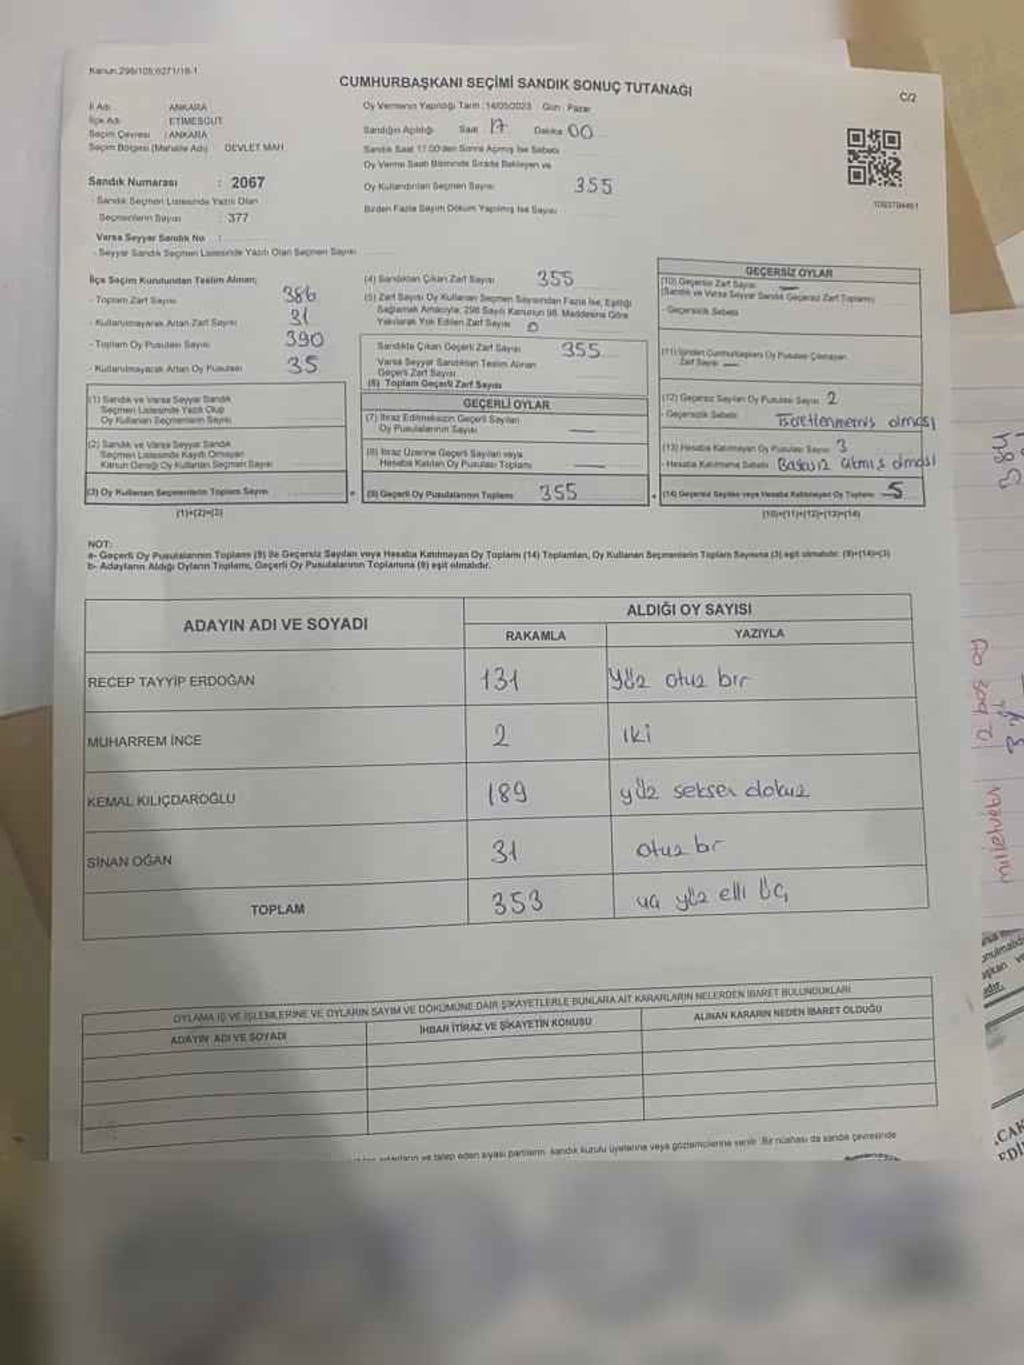 Kanun:298/105;6271/16-1
CUMHURBAŞKANI SEÇİMİ SANDIK SONUÇ TUTANAĞI
C/2
İl Adı : ANKARA
İlçe Adı : ETİMESGUT
Seçim Çevresi : ANKARA
Seçim Bölgesi (Mahalle Adı) : DEVLET MAH
Sandık Numarası : 2067
- Sandık Seçmen Listesinde Yazılı Olan
Seçmenlerin Sayısı : 377
Varsa Seyyar Sandık No :
- Seyyar Sandık Seçmen Listesinde Yazılı Olan Seçmen Sayısı
Oy Vermenin Yapıldığı Tarih :14/05/2023 Gün : Pazar
Sandığın Açıldığı Saat 17 Dakika 00
Sandık Saat 17.00'den Sonra Açılmış İse Sebebi
Oy Verme Saati Bitiminde Sırada Bekleyen ve
Oy Kullandırılan Seçmen Sayısı 355
Birden Fazla Sayım Döküm Yapılmış İse Sayısı
İlçe Seçim Kurulundan Teslim Alınan;
- Toplam Zarf Sayısı 386
- Kullanılmayarak Artan Zarf Sayısı 31
- Toplam Oy Pusulası Sayısı 390
- Kullanılmayarak Artan Oy Pusulası 35
(1) Sandık ve Varsa Seyyar Sandık
Seçmen Listesinde Yazılı Olup
Oy Kullanan Seçmenlerin Sayısı
(2) Sandık ve Varsa Seyyar Sandık
Seçmen Listesinde Kayıtlı Olmayan
Kanun Gereği Oy Kullanan Seçmen Sayısı
(3) Oy Kullanan Seçmenlerin Toplam Sayısı
(1)+(2)=(3)
(4) Sandıktan Çıkan Zarf Sayısı 355
(5) Zarf Sayısı Oy Kullanan Seçmen Sayısından Fazla İse, Eşitliği
Sağlamak Amacıyla, 298 Sayılı Kanunun 98. Maddesine Göre
Yakılarak Yok Edilen Zarf Sayısı 0
Sandıkta Çıkan Geçerli Zarf Sayısı 355
Varsa Seyyar Sandıktan Teslim Alınan
Geçerli Zarf Sayısı
(6) Toplam Geçerli Zarf Sayısı
GEÇERLİ OYLAR
(7) İtiraz Edilmeksizin Geçerli Sayılan
Oy Pusulalarının Sayısı —
(8) İtiraz Üzerine Geçerli Sayılan veya
Hesaba Katılan Oy Pusulası Toplamı —
(9) Geçerli Oy Pusulalarının Toplamı 355
GEÇERSİZ OYLAR
(10) Geçersiz Zarf Sayısı —
(Sandık ve Varsa Seyyar Sandık Geçersiz Zarf Toplamı)
- Geçersizlik Sebebi
(11) İçinden Cumhurbaşkanı Oy Pusulası Çıkmayan
Zarf Sayısı —
(12) Geçersiz Sayılan Oy Pusulası Sayısı 2
- Geçersizlik Sebebi: İşaretlenmemiş olması
(13) Hesaba Katılmayan Oy Pusulası Sayısı 3
- Hesaba Katılmama Sebebi
(14) Geçersiz Sayılan veya Hesaba Katılmayan Oy Toplamı 5
(10)+(11)+(12)+(13)=(14)
NOT:
a- Geçerli Oy Pusulalarının Toplamı (9) ile Geçersiz Sayılan veya Hesaba Katılmayan Oy Toplamı (14) Toplamları, Oy Kullanan Seçmenlerin Toplam Sayısına (3) eşit olmalıdır. (9)+(14)=(3)
b- Adayların Aldığı Oyların Toplamı, Geçerli Oy Pusulalarının Toplamına (9) eşit olmalıdır.
ADAYIN ADI VE SOYADI
ALDIĞI OY SAYISI
RAKAMLA YAZIYLA
RECEP TAYYİP ERDOĞAN 131 Yüz otuz bir
MUHARREM İNCE 2 İki
KEMAL KILIÇDAROĞLU 189 yüz seksen dokuz
SİNAN OĞAN 31 otuz bir
TOPLAM 353 üç yüz elli üç
OYLAMA İŞ VE İŞLEMLERİNE VE OYLARIN SAYIM VE DÖKÜMÜNE DAİR ŞİKAYETLERLE BUNLARA AİT KARARLARIN NELERDEN İBARET BULUNDUKLARI
ADAYIN ADI VE SOYADI
İHBAR İTİRAZ VE ŞİKAYETİN KONUSU
ALINAN KARARIN NEDEN İBARET OLDUĞU
ve talep eden siyasi partilerin sandık kurulu üyelerine veya gözlemcilerine verilir. Bir nüshası da sandık çevresinde
384
milletvekili